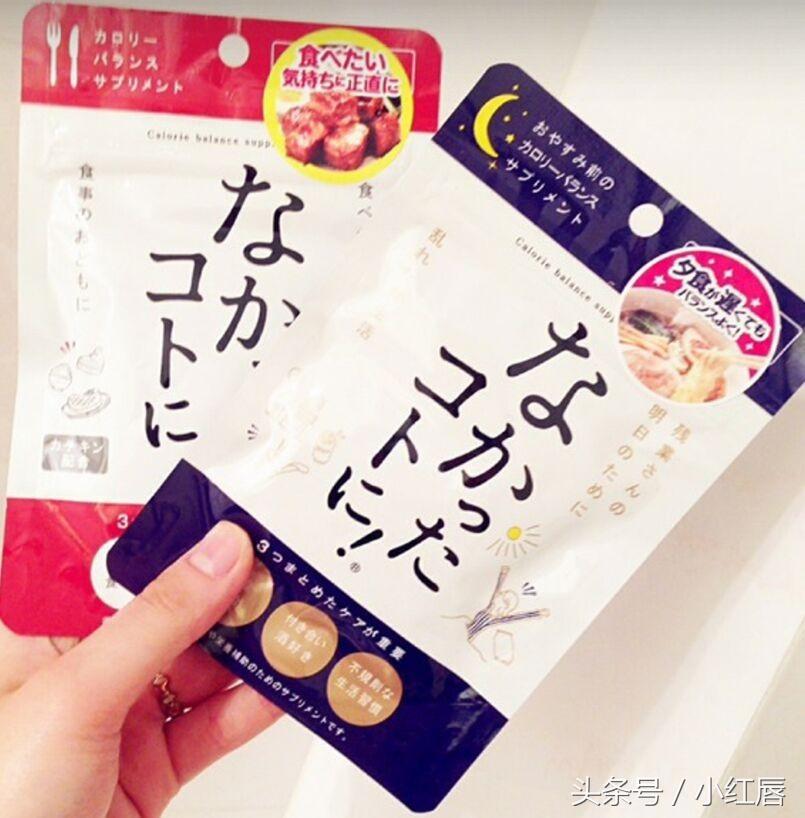 カロリー
バランス
サプリメント
食べたい
気持ちに正直に
Calorie balance supp
食事のおともに
食べ
なか
コトに
カテキン
配合
3
食
おやすみ前の
カロリーバランス
サプリメント
Calorie balance supp
夕食が遅くても
バランスよく!
乱れ
活
残業さんの
明日のために
なかった
コトに!®
3つまとめたケアが重要
付き合い
酒好き
不規則な
生活習慣
栄養補助のためのサプリメントです。
头条号 / 小红唇